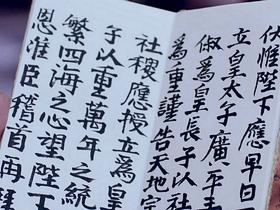 伏惟陛下應早日
立皇太子廣平王
俶為皇長子以社
為重謹告天地宗
社稷應授立為皇
子以重萬年之統
繁四海之心望陛
恩淮臣稽首再拜